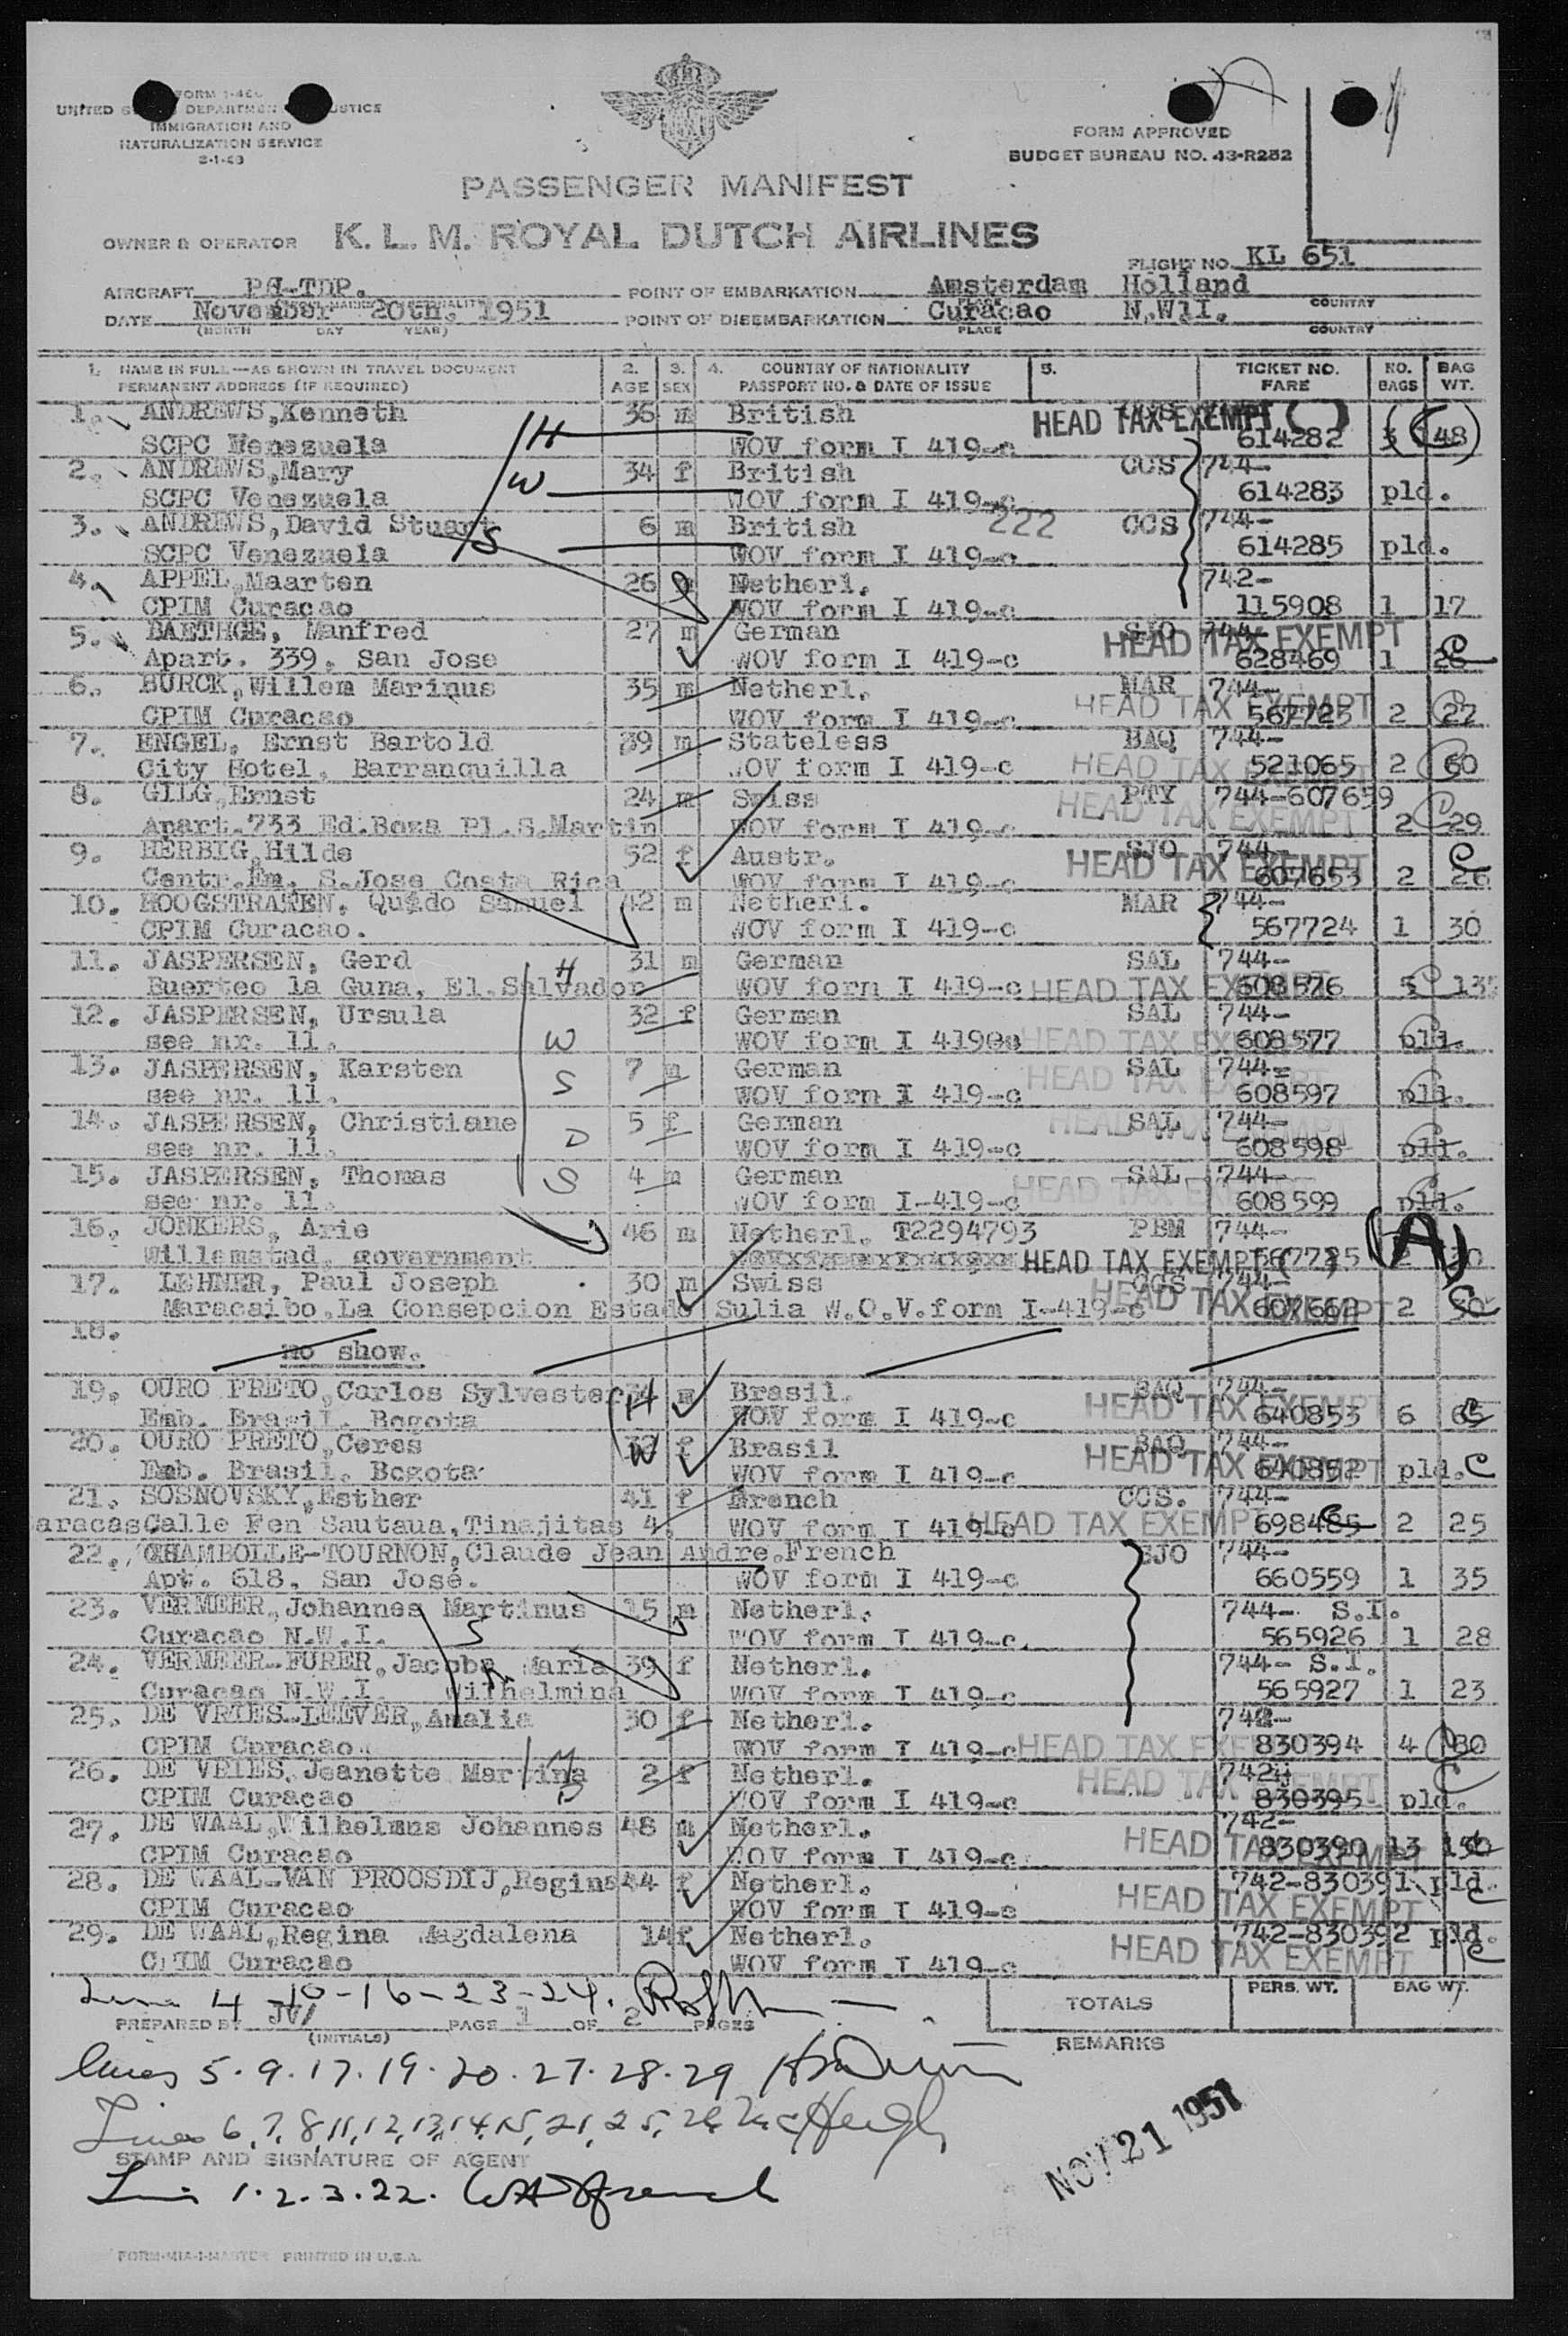 FORM I-466
UNITED DEPARTMENT JUSTICE
IMMIGRATION AND
NATURALIZATION SERVICE
FORM APPROVED
BUDGET BUREAU NO. 43-R252
PASSENGER MANIFEST
OWNER & OPERATOR K. L. M. ROYAL DUTCH AIRLINES
FLIGHT NO. KL 651
AIRCRAFT PH-TDP. POINT OF EMBARKATION Amsterdam Holland
DATE November 20th. 1951 POINT OF DISEMBARKATION Curacao N.W.I.
(MONTH DAY YEAR) PLACE COUNTRY
1. NAME IN FULL—AS SHOWN IN TRAVEL DOCUMENT 2. 3. 4. COUNTRY OF NATIONALITY 5. TICKET NO. NO. BAG
PERMANENT ADDRESS (IF REQUIRED) AGE SEX PASSPORT NO. & DATE OF ISSUE FARE BAGS WT.
1. ANDREWS,Kenneth 36 m British HEAD TAX EXEMPT ( )
SCPC Venezuela H WOV form I 419-c 614282 3 48
2. ANDREWS,Mary 34 f British CCS 744-
SCPC Venezuela W WOV form I 419-c 614283 pld.
3. ANDREWS,David Stuart 6 m British 222 CCS 744-
SCPC Venezuela S WOV form I 419-c 614285 pld.
4. APPEL,Maarten 26 Netherl. 742-
CPIM Curacao WOV form I 419-c 115908 1 17
5. BAETHGE, Manfred 27 m German SJO 744- HEAD TAX EXEMPT
Apart. 339, San Jose WOV form I 419-c 628469 1
6. BURCK,Willem Marinus 35 m Netherl. MAR 744- HEAD TAX EXEMPT
CPIM Curacao WOV form I 419-c 567725 2 27
7. ENGEL, Ernst Bartold 39 m Stateless BAQ 744-
City Hotel, Barranquilla WOV form I 419-c HEAD TAX EXEMPT 521065 2 60
8. GILG,Ernst 24 m Swiss PTY 744-607659
Apart.733 Ed.Boza Pl.S.Martin WOV form I 419-c HEAD TAX EXEMPT 2 29
9. HERBIG,Hilde 52 f Austr. SJO 744- HEAD TAX EXEMPT
Centr.Em. S.Jose Costa Rica WOV form I 419-c 607653 2
10. HOOGSTRATEN, Quido Samuel 42 m Netherl. MAR 744-
CPIM Curacao. WOV form I 419-c 567724 1 30
11. JASPERSEN, Gerd H 31 m German SAL 744-
Puerteo la Guna, El.Salvador WOV form I 419-c HEAD TAX EXEMPT 608576 5 135
12. JASPERSEN, Ursula 32 f German SAL 744-
see nr. 11. W WOV form I 419 HEAD TAX EXEMPT 608577 pld.
13. JASPERSEN, Karsten 7 m German SAL 744-
see nr. 11. S WOV form I 419-c HEAD TAX EXEMPT 608597 pld.
14. JASPERSEN, Christiane 5 f German SAL 744-
see nr. 11. D WOV form I 419-c HEAD TAX EXEMPT 608598 pld.
15. JASPERSEN, Thomas 4 m German SAL 744-
see nr. 11. S WOV form I-419-c HEAD TAX EXEMPT 608599 pld.
16. JONKERS, Arie 46 m Netherl. T2294793 PBM 744-
Willemstad, government HEAD TAX EXEMPT ( ) 567725 2 30 (A)
17. LEHNER, Paul Joseph 30 m Swiss CCS 744-
Maracaibo.La Consepcion Estado Sulia W.O.V.form I-419-c HEAD TAX EXEMPT 607662 2 30
18.
no show.
19. OURO PRETO,Carlos Sylvester H m Brasil. BAQ 744-
Emb. Brasil. Bogota WOV form I 419-c HEAD TAX EXEMPT 640853 6 65
20. OURO PRETO,Ceres W f Brasil BAQ 744-
Emb. Brasil. Bogota WOV form I 419-c HEAD TAX EXEMPT 640852 pld.
21. SOSNOVSKY,Esther 41 f French CCS. 744-
aracas Calle Fen Sautaua,Tinajitas 4, WOV form I 419-c HEAD TAX EXEMPT 698485 2 25
22. CHAMBOLLE-TOURNON,Claude Jean Andre.French SJO 744-
Apt. 618, San José. WOV form I 419-c 660559 1 35
23. VERMEER,Johannes Martinus 15 m Netherl. 744- S.I.
Curacao N.W.I. S WOV form I 419-c. 565926 1 28
24. VERMEER-FURER,Jacoba Maria 39 f Netherl. 744- S.I.
Curacao N.W.I. Wilhelmina WOV form I 419-c 565927 1 23
25. DE VRIES-LEEVER,Amalia 30 f Netherl. 742-
CPIM Curacao. WOV form I 419-c HEAD TAX EXEMPT 830394 4 80
26. DE VRIES,Jeanette Martina 2 f Netherl. 742-
CPIM Curacao WOV form I 419-c HEAD TAX EXEMPT 830395 pld.
27. DE WAAL,Wilhelmus Johannes 48 m Netherl. 742-
CPIM Curacao WOV form I 419-c HEAD TAX EXEMPT 830390 13
28. DE WAAL-VAN PROOSDIJ,Regina 44 f Netherl. 742-830391 pld.
CPIM Curacao WOV form I 419-c HEAD TAX EXEMPT
29. DE WAAL,Regina Magdalena 14 f Netherl. 742-830392 pld.
CPIM Curacao WOV form I 419-c HEAD TAX EXEMPT
Lines 4-10-16-23-24.
PREPARED BY JV/ PAGE 1 OF 2 PAGES
(INITIALS)
TOTALS PERS. WT. BAG WT.
REMARKS
Lines 5.9.17.19.20.27.28.29
Lines 6,7,8,11,12,13,14,15,21,25,26
STAMP AND SIGNATURE OF AGENT
NOV 21 1951
Line 1.2.3.22.
FORM-MIA-1-MASTER PRINTED IN U.S.A.